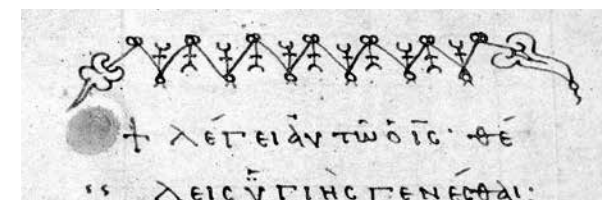 + λέγει ἀυτῶ ὁ ἰς· θέ
λεις ὑγιὴς γενέσθαι·